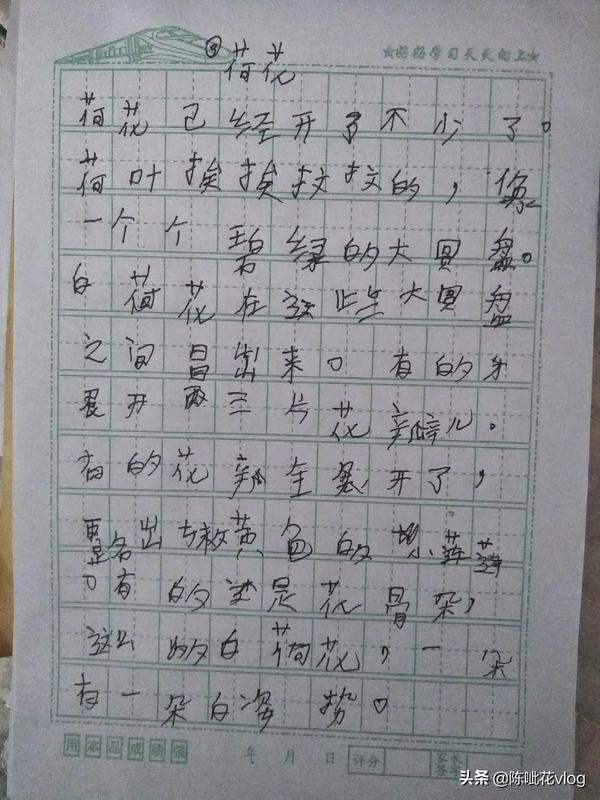 ★好好学习天天向上★
③荷花
荷花已经开了不少了。
荷叶挨挨的，像
一个个碧绿的大圆盘。
白荷花在这些大圆盘
之间冒出来。有的才
展开两三片花瓣儿。
有的花瓣全展开了，
露出嫩黄色的小莲蓬
有的还是花骨朵，
这么的白荷花，一朵
有一朵白姿势。
用本品成绩强
年 月 日 评分 家长签字
头条 @陈呲花vlog